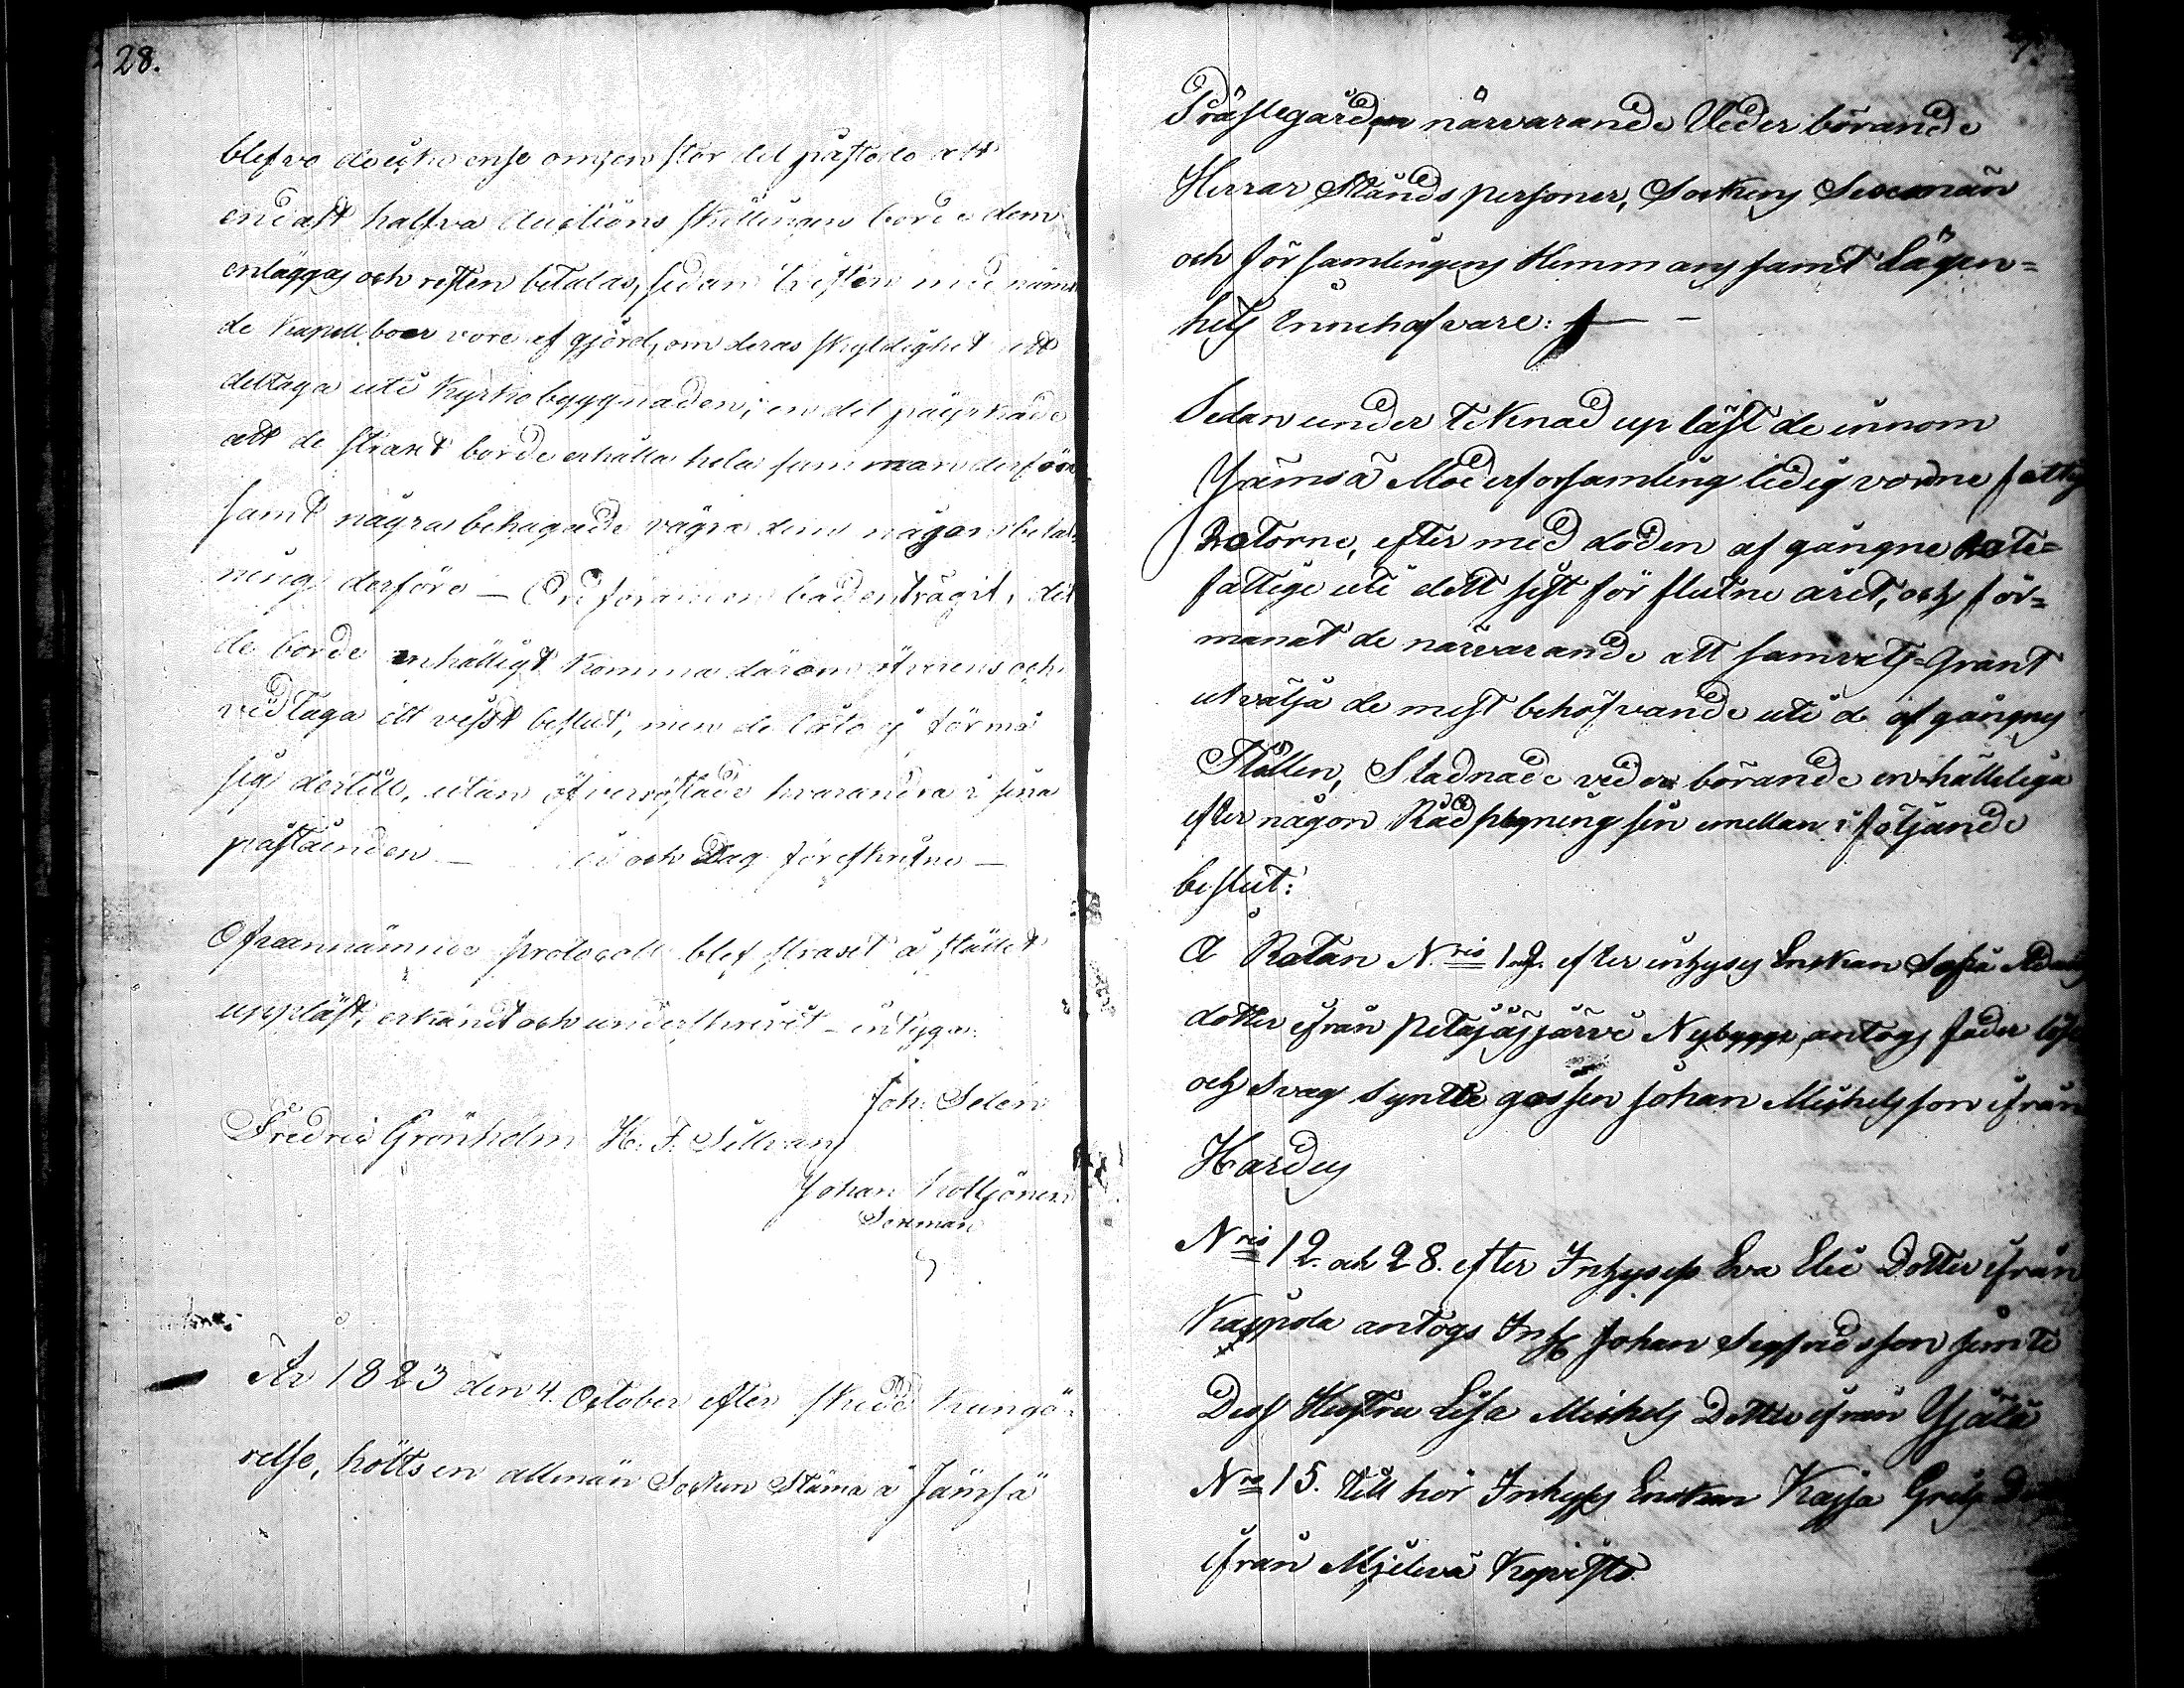 28.
blefvo de icke ense om, en stor del påstodo att
endast halfva Auctions skillingen borde dem
enläggas och resten betalas, sedan tvisten med näm
de Kapell boer vore af gjord, om deras skyldighet att
deltaga uti Kyrkobyggnaden; en del påyrkade
att de straxt borde erhålla hela summan derföre
samt några behagade vägra dem någon betal
ning derföre — Ordföranden bad enträgit, det
de borde enhälligt komma därom öfverens och
vedtaga ett visst beslut, men de läto ej förmå
sig dertill, utan öfverröstade hvarandra i sina
påståenden — År och Dag förskrifne —
Ofvannämnde protocoll blef straxt å stället
uppläst, erkändt och underskrivit – intygar.
Joh: Selén
Fredric Grönholm H. F. Sillman
Johan Koltjonen
Sexman
År 1823 den 4. October efter skedd kungö-
relse, hölts en allmän Socken Stäma å Jämsä
Prästegården närvarande Vederbörande
Herrar Stånds personer, Sockens Sexmän
och församlingens Hemmans samt Lägen=
hets Innehafvare: —
Sedan under teknad up läst de innom
Jämsä Moderforsamling ledig vordne fattig
Rotorne, efter med döden af gångne Rote=
fattige uti dett sist för flutne året, och för=
manat de närvarande att samvets=Grant
ut välja de mest behöfvande uti de af gångnes
Ställen, Stadnade veder börande en=hälleliga
efter någon Rådplägning sin emellan i följande
beslut:
A Rotan N.ris 1. 2. efter inhyses Enkan Sofia Adams
dotter ifrån Petäjäsjärvi Nybygge, antogs fader lösa
och svag synte gossen Johan Michelsson ifrån
Hardus
N ris 12. och 28. efter Inhyses Eva Elie Dotter ifrån
Kaipola antogs Inh Johan Segfredsson jemte
Dess Hustru Lisa Michels Dotter ifrån Yjälä
N ro 15. till hör Inhyses Enkan Kajsa Grels Do
ifrån Koivisto